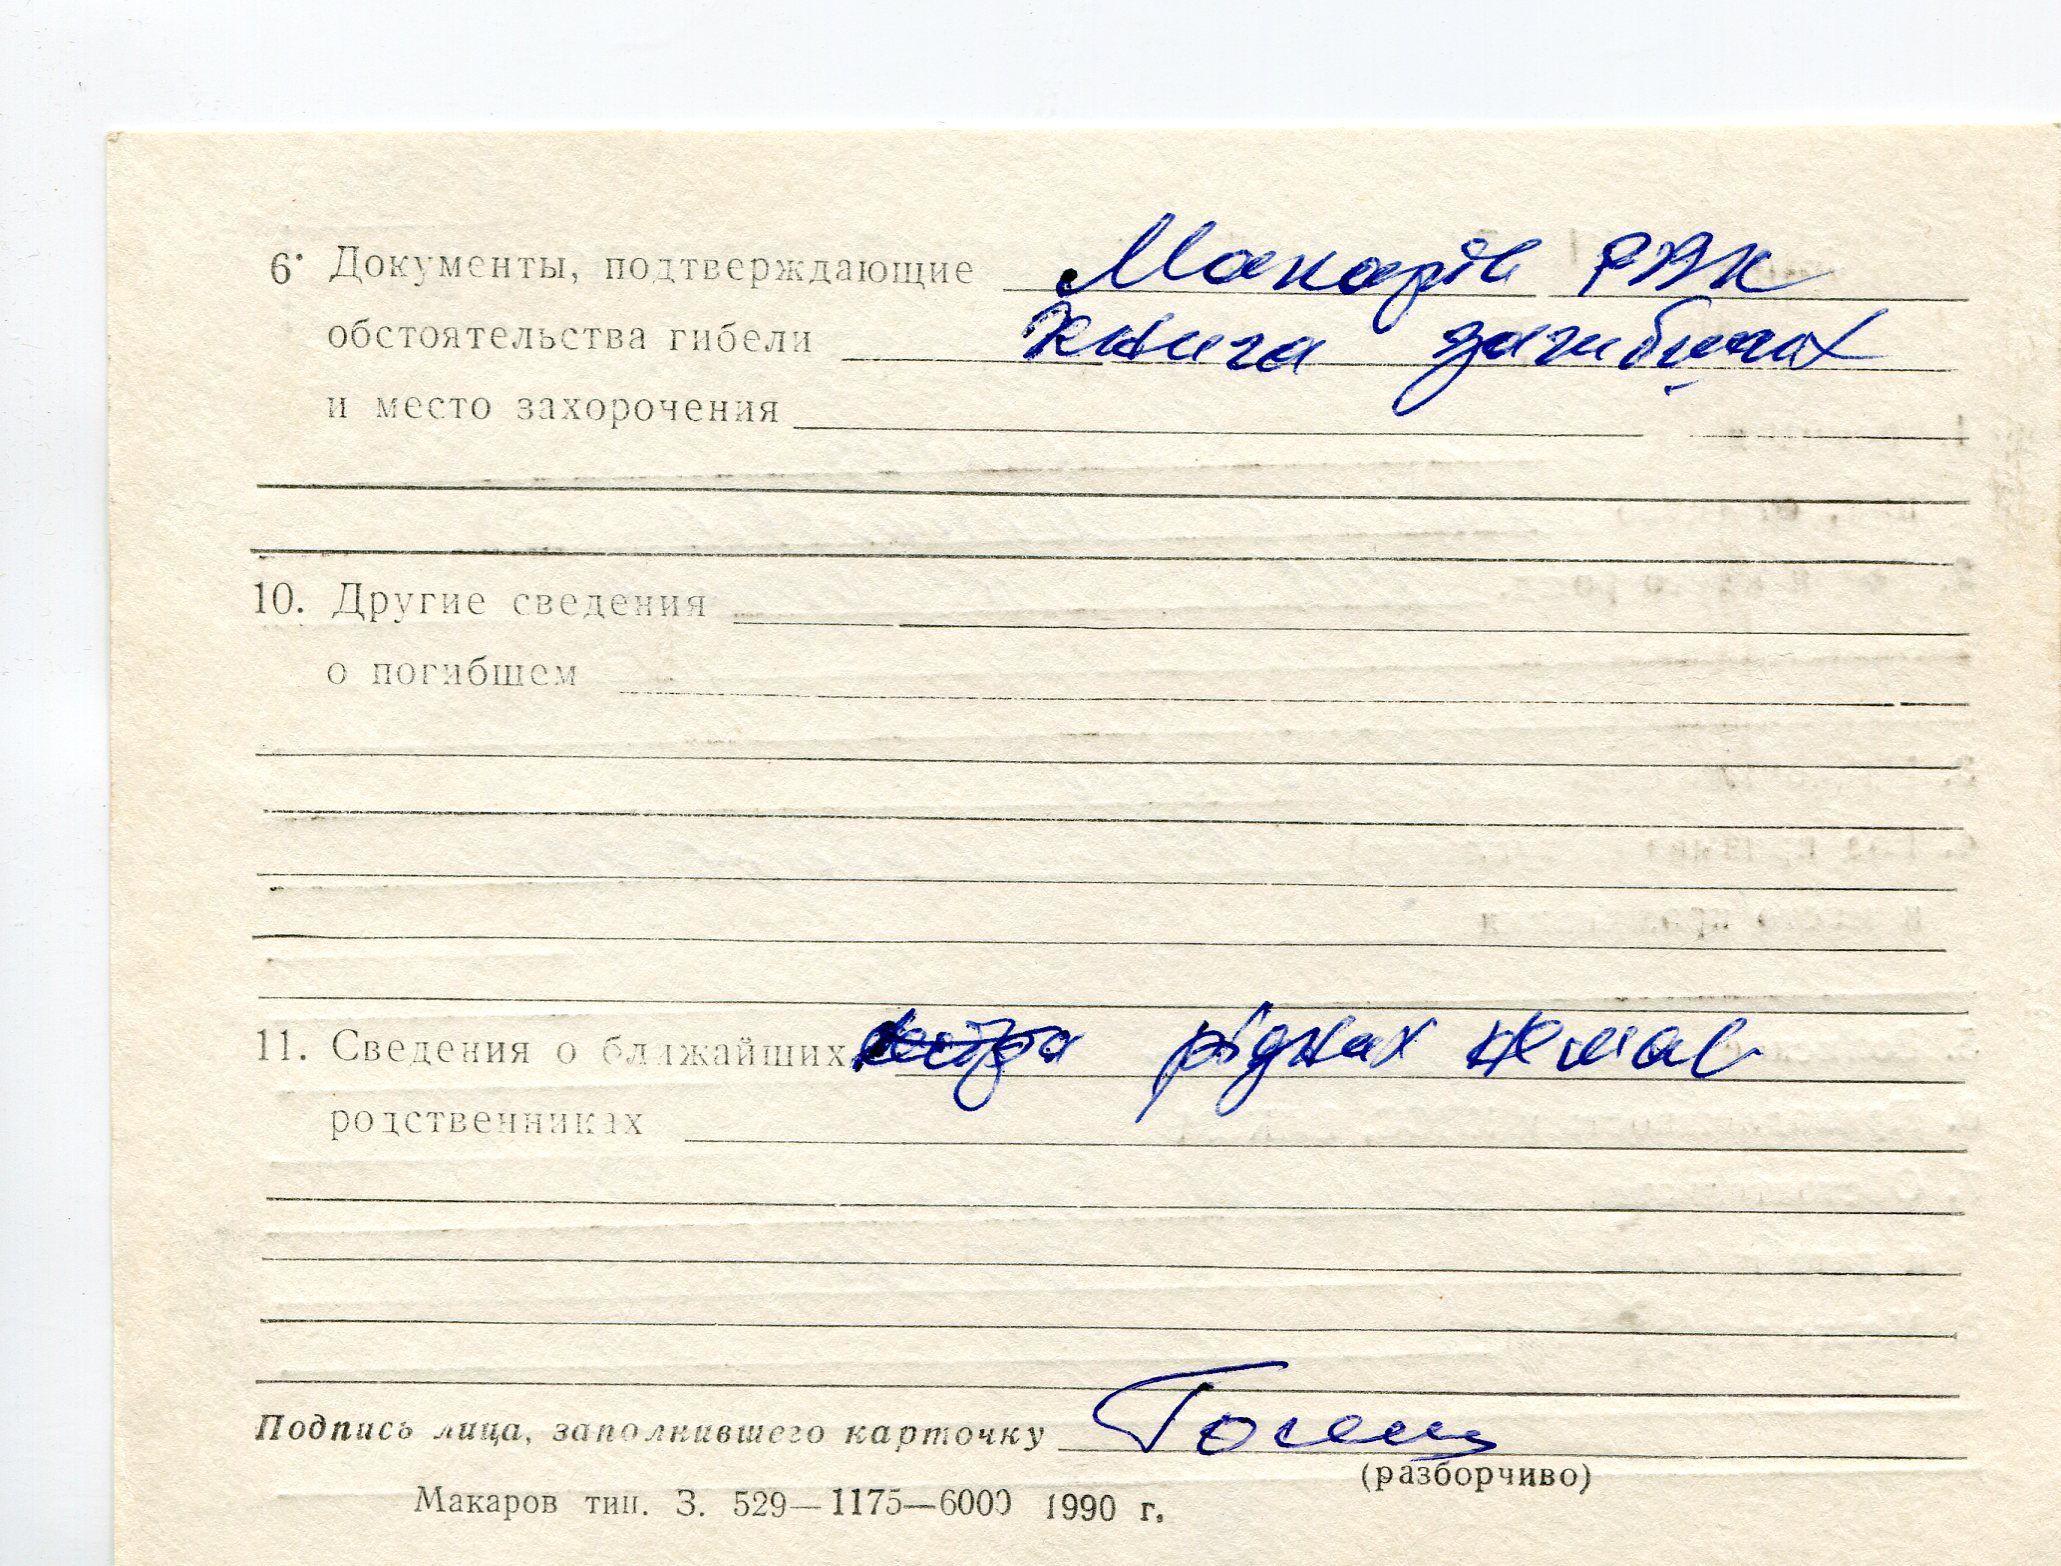 6. Документы, подтверждающие Макарів РВК
обстоятельства гибели книга загиблих
и место захорочения
10. Другие сведения
о погибшем
11. Сведения о ближайших рідних немає
родственниках
Подпись лица, заполнившего карточку
(разборчиво)
Макаров тип. З. 529—1175—6000 1990 г.